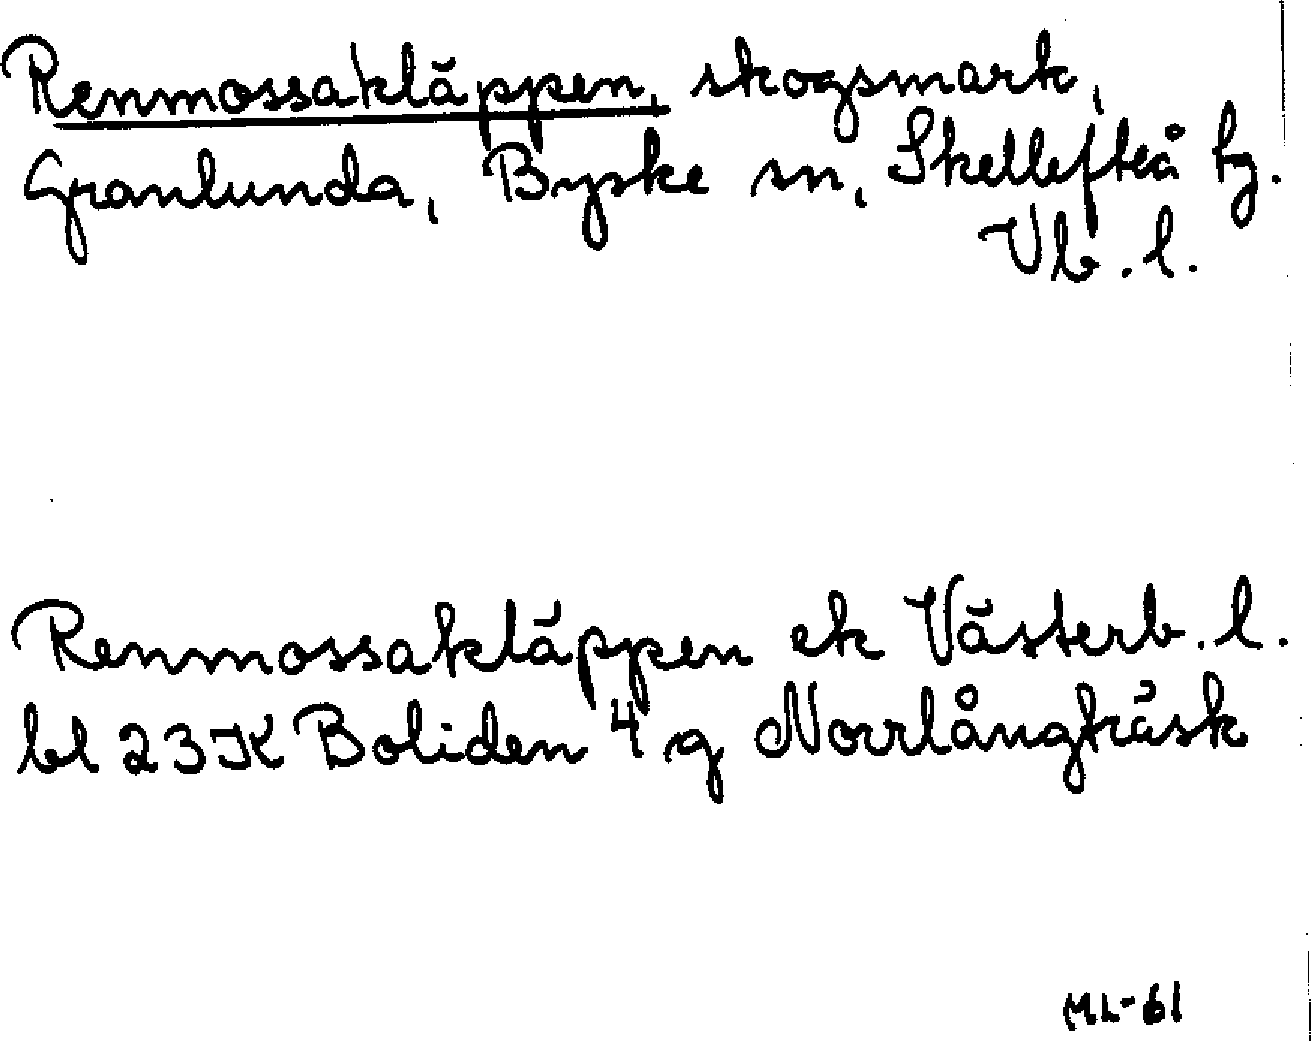 Renmossakläppen, skogsmark,
Granlunda, Byske sn, Skellefteå tg.
Vb. l.
Renmossakläppen ek Västerb. l.
bl 23 K Boliden 4 g Norrlångträsk
ML-61